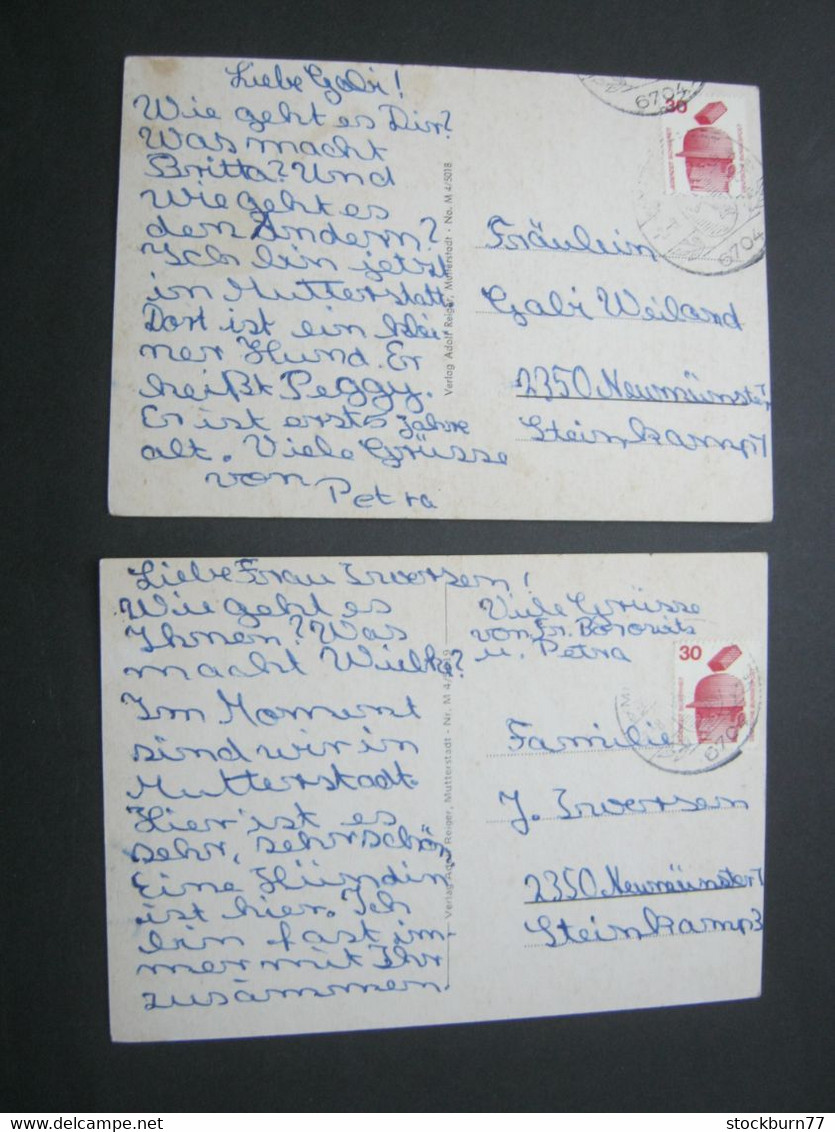 Liebe Gabi!
Wie geht es Dir?
Was macht
Britta? Und
wie geht es
den Andern?
Ich bin jetzt
in Mutterstatt.
Dort ist ein klei-
ner Hund. Er
heißt Peggy.
Er ist erst 2 Jahre
alt. Viele Grüsse
von
Petra
Verlag Adolf Reiger, Mutterstadt · No. M 4/5018
6704
30
6704
Fräulein
Gabi Weiland
2350 Neumünster
Steinkamp
Liebe Frau Iwersen!
Wie geht es
Ihnen? Was
macht Wiebke?
Im Moment
sind wir in
Mutterstadt.
Hier ist es
sehr, sehr schön
Eine Hündin
ist hier. Ich
bin fast im-
mer mit Ihr
zusammen
Verlag Adolf Reiger, Mutterstadt · Nr. M 4/
Viele Grüsse
von Fr. Borowitz
u. Petra
30
6704
Familie
J. Iwersen
2350 Neumünster 1
Steinkamp 3
stockburn77